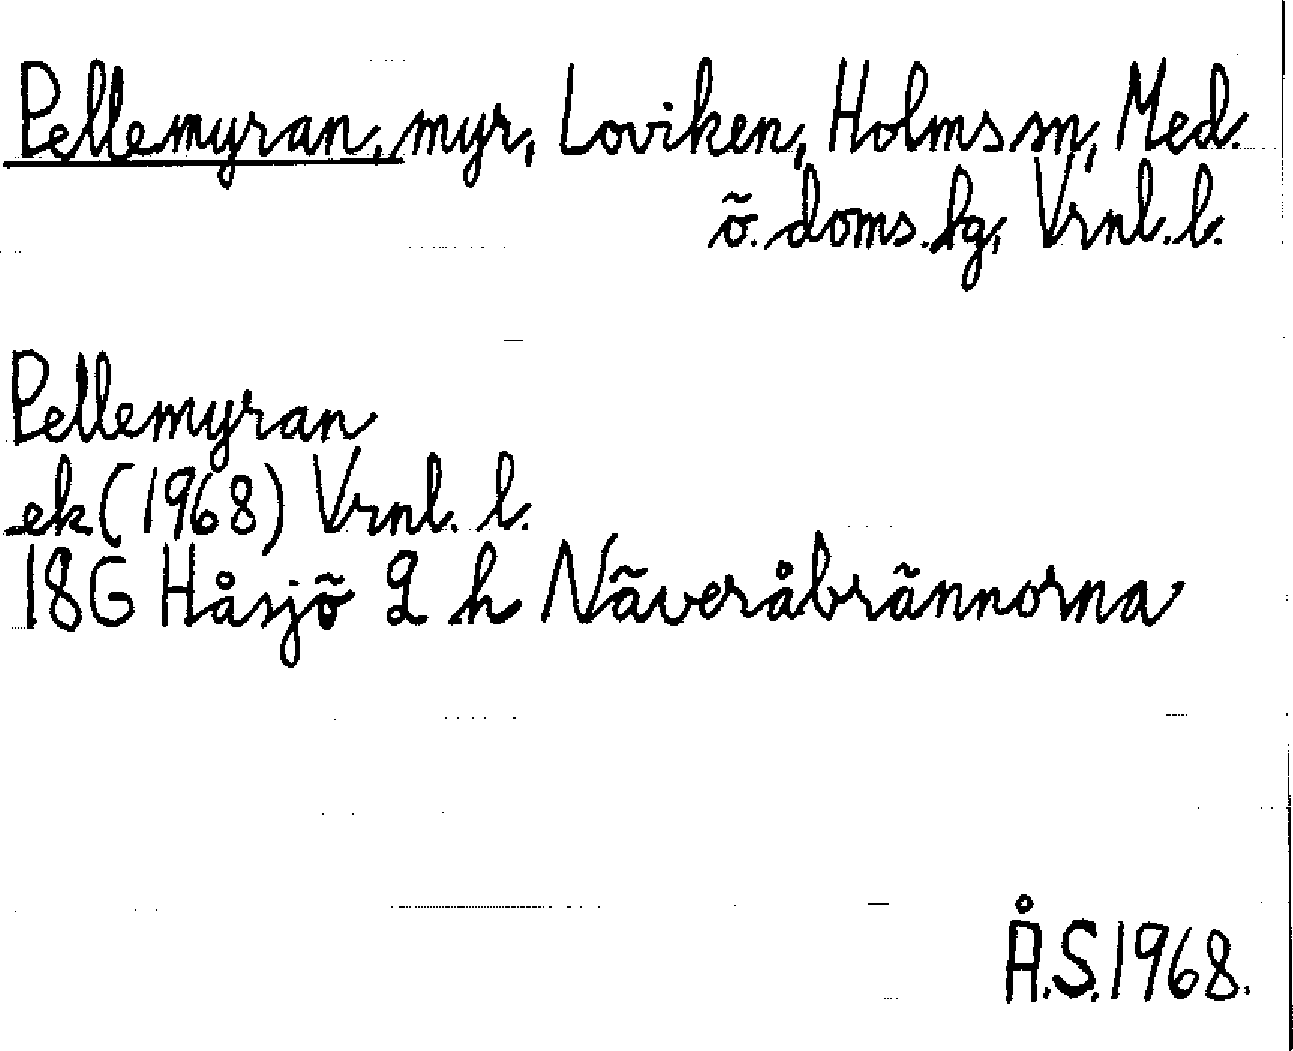 Pellemyran, myr, Loviken, Holms sn, Med.
ö. doms. sg, Vrnl. l.
Pellemyran
ek (1968) Vrnl. l.
18G Håsjö 2 h Näveråbrännorna
Å.S. 1968.